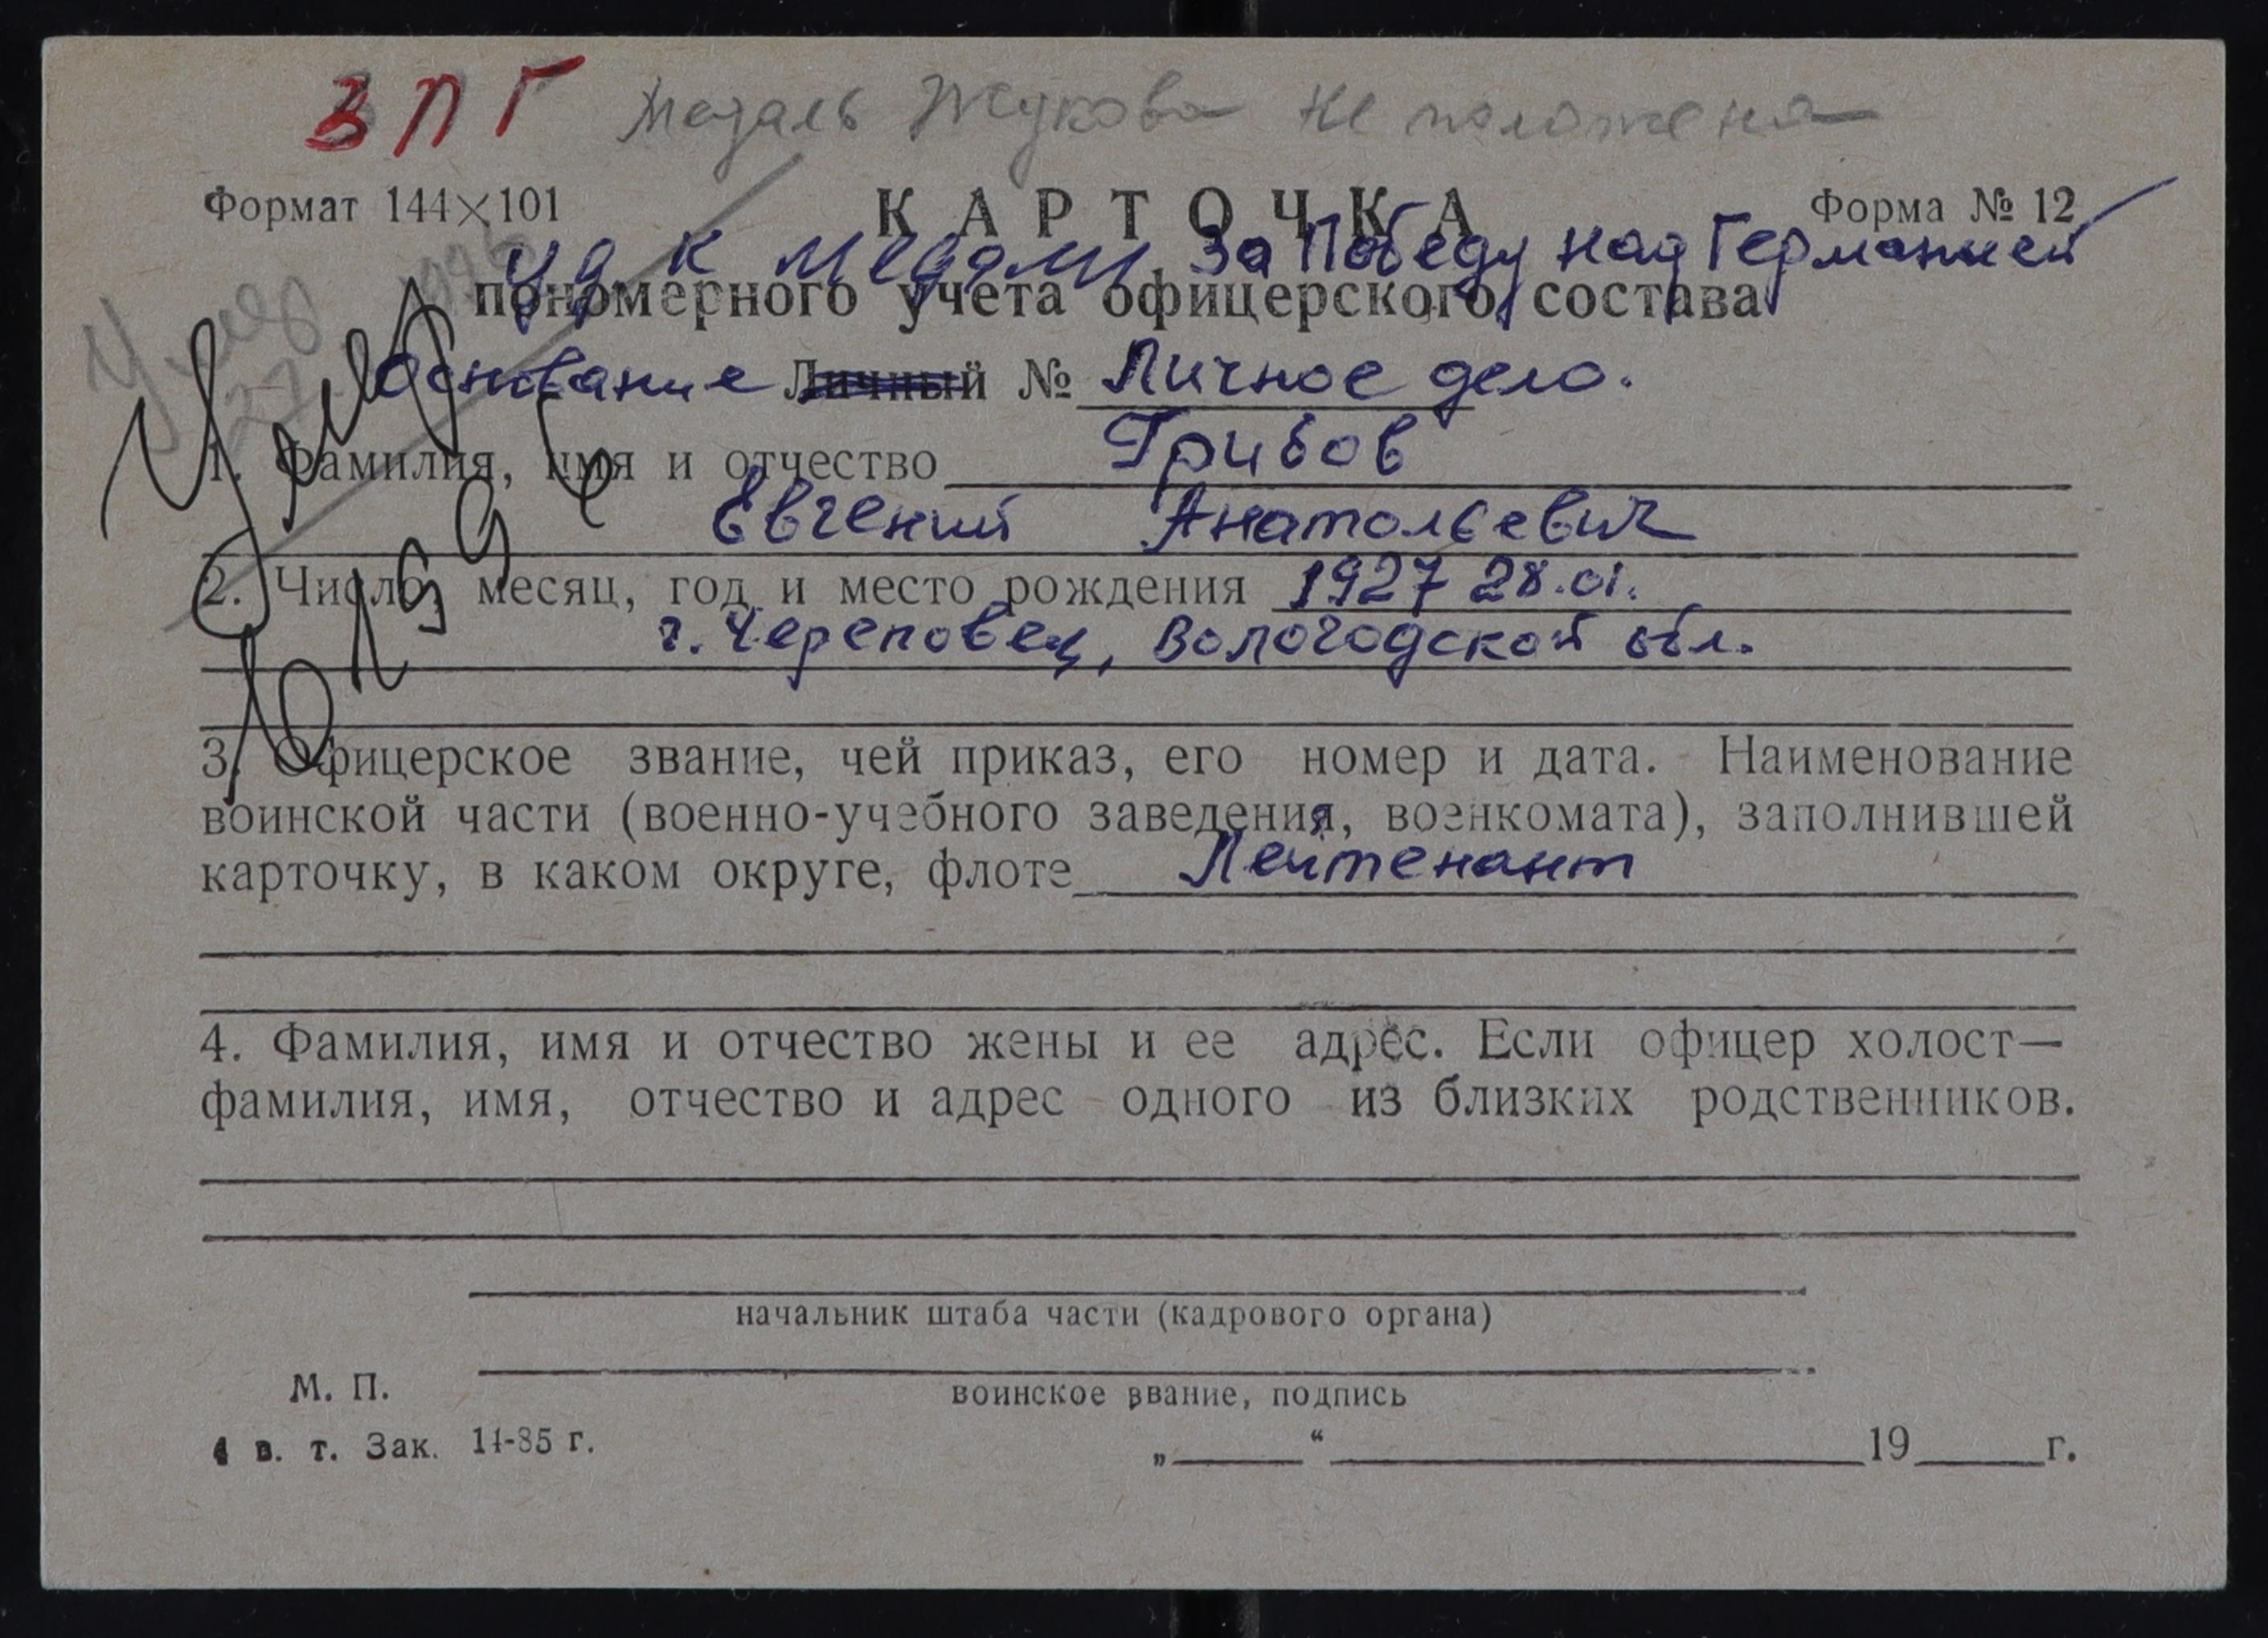 ЗПГ Медаль Жукова не положена
Формат 144×101 КАРТОЧКА Форма № 12
Уд к медали За Победу над Германией
пономерного учета офицерского состава
Основание Личный № Личное дело.
1. Фамилия, имя и отчество Грибов
Евгений Анатольевич
2. Число, месяц, год и место рождения 1927 28.01.
г. Череповец, Вологодской обл.
3. Офицерское звание, чей приказ, его номер и дата. Наименование
воинской части (военно-учебного заведения, военкомата), заполнившей
карточку, в каком округе, флоте Лейтенант
4. Фамилия, имя и отчество жены и ее адрес. Если офицер холост—
фамилия, имя, отчество и адрес одного из близких родственников.
начальник штаба части (кадрового органа)
М. П.
воинское звание, подпись
4 в. т. Зак. 14-85 г.
„ “ 19 г.